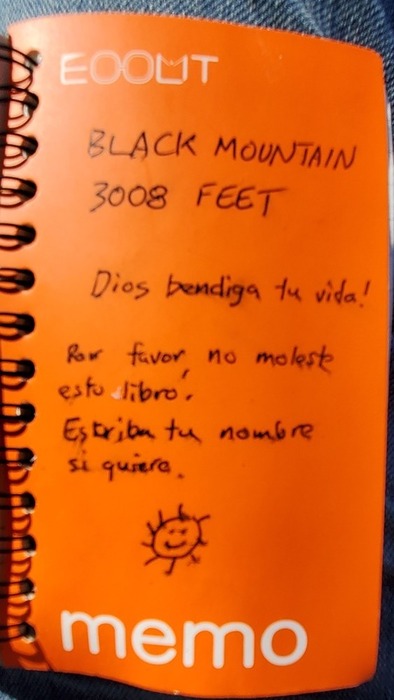 EOOUT
BLACK MOUNTAIN
3008 FEET
Dios bendiga tu vida!
Por favor, no moleste
esto libro.
Escriba tu nombre
si quiere.
memo